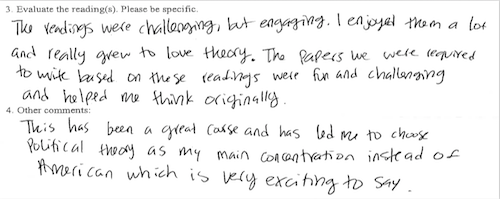 3. Evaluate the reading(s). Please be specific.
The readings were challenging, but engaging. I enjoyed them a lot
and really grew to love theory. The papers we were required
to write based on these readings were fun and challenging
and helped me think originally.
4. Other comments:
This has been a great course and has led me to choose
Political theory as my main concentration instead of
American which is very exciting to say.